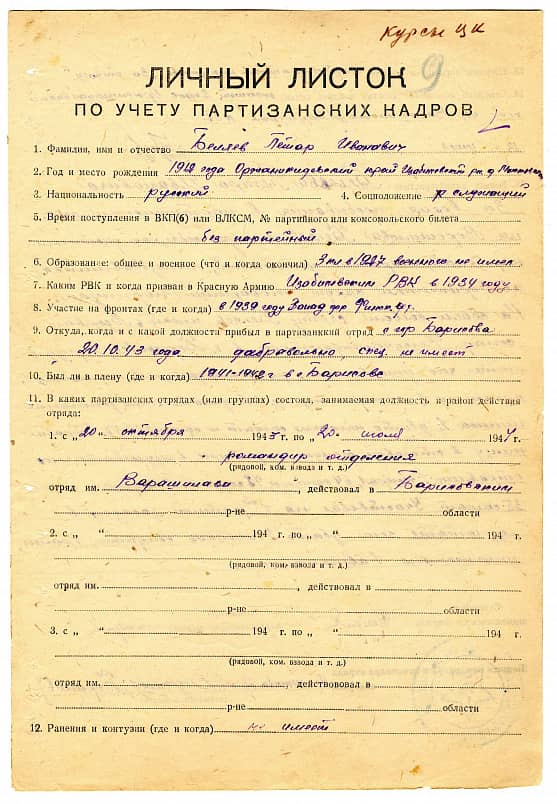 Курсы ЦК
9
ЛИЧНЫЙ ЛИСТОК
ПО УЧЕТУ ПАРТИЗАНСКИХ КАДРОВ
1. Фамилия, имя и отчество Беляев Пётар Иванович
2. Год и место рождения года Орджоникидзевский край
3. Национальность русский 4. Соцположение служащий
5. Время поступления в ВКП(б) или ВЛКСМ, № партийного или комсомольского билета
без партейный
6. Образование: общее и военное (что и когда окончил) 3 в 1927 военного не имеет
7. Каким РВК и когда призван в Красную Армию РВК в 1934 году
8. Участие на фронтах (где и когда) в 1939 году Запад
9. Откуда, когда и с какой должности прибыл в партизанкий отряд с гор Борисова
20.10.43 года добравольно, спец. не имеет
10. Был ли в плену (где и когда) 1941-1942г в г Борисове
11. В каких партизанских отрядах (или группах) состоял, занимаемая должность и район действия
отряда:
1. с „20" октября 1943 г. по „20" июля 1944 г.
командир отделения
(рядовой, ком. взвода и т. д.)
отряд им. , действовал в
р-не области
2. с „ " 194 г. по „ " 194 г.
(рядовой, ком. взвода и т. д.)
отряд им. , действовал в
р-не области
3. с „ " 194 г. по „ " 194 г.
(рядовой, ком. взвода и т. д.)
отряд им. , действововал в
р-не области
12. Ранения и контузии (где и когда) не имеет